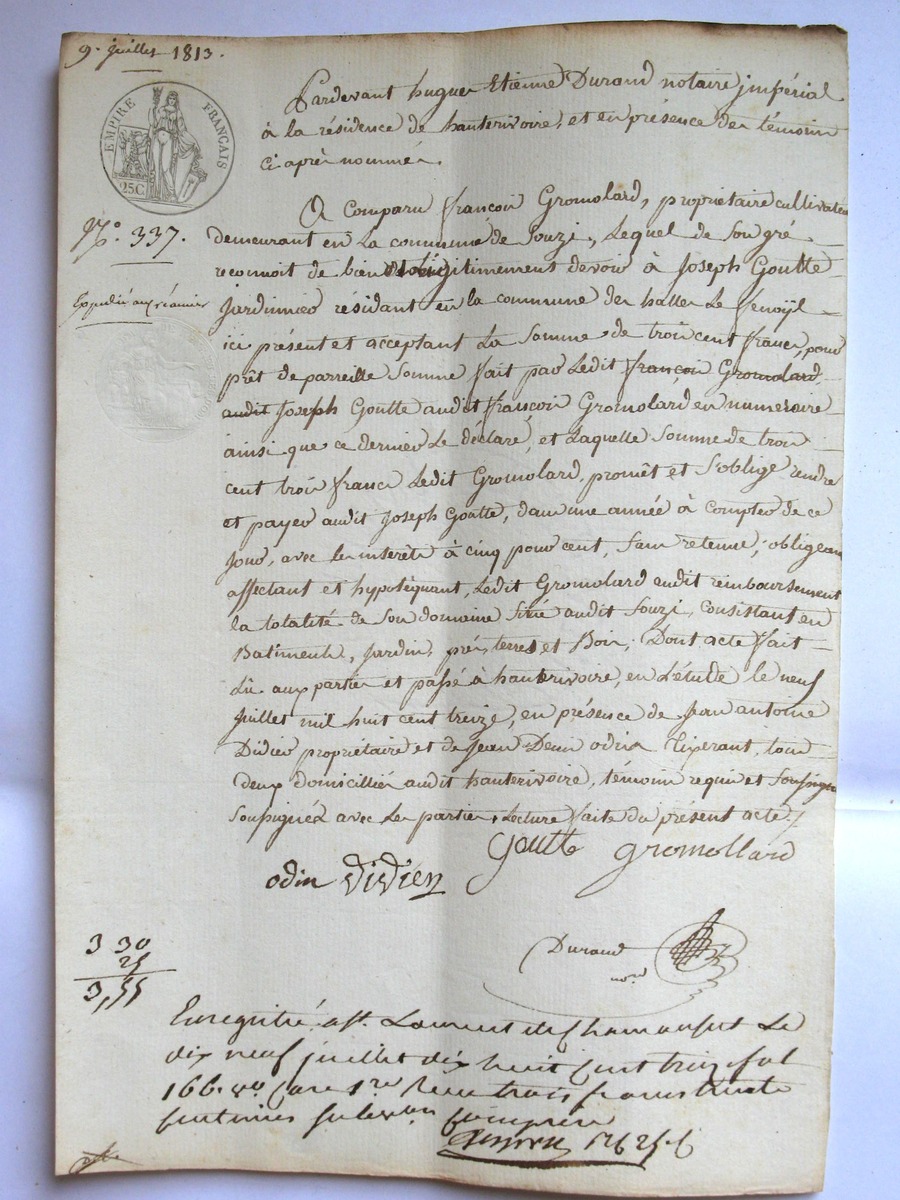 9. juillet 1813.
EMPIRE FRANÇAIS
25C.
N.o 337.
Pardevant hugues Etienne Durand notaire impérial
à la résidence de hauterivoire, et en présence des témoins
ci après nommés.
A Comparu françois Gromolard, propriétaire cultivateur
demeurant en La commune de Souzi, Lequel de Son gré
reconnoit de bien et légitimement devoir à Joseph Goutte
Jardinnier résidant en la commune des halles Le fenoÿl
ici présent et acceptant La Somme de trois cent francs, pour
prêt de parreille Somme fait par Ledit françois Gromolard
audit Joseph Goutte audit françois Gromolard en numeraire
ainsi que ce dernier Le déclare, et Laquelle Somme de trois
cent trois francs Ledit Gromolard, promêt et S'oblige rendre
et payer audit Joseph Goutte, dans une année à compter de ce
Jour, avec les interêts à cinq pour cent, Sans retenue, obligeant
affectant et hypotéquant, Ledit Gromolard audit reimboursement
la totalité de Son domaine Situé audit Souzi, consistant en
Batiments, Jardin, prés, terres et Bois, Dont acte fait
Lû aux parties et passé à hauterivoire, en L'étude le neuf
Juillet mil huit cent treize, en présence de Jean antoine
Didier propriétaire et de Jean Denis odin Tixerant, tous
deux domicilliés audit hauterivoire, témoins requis et Soussignés
Soussignés avec Les parties, Lecture faite du présent acte.
Goutte gromollard
odin DiDier
Durand
nore
3 30
25
3,55
Enregistré à St. Laurent de Chamousset Le
dix neuf juillet dix huit cent treize fol
166. vo Case 1re Reçu trois francs trente
centimes subvon comprise